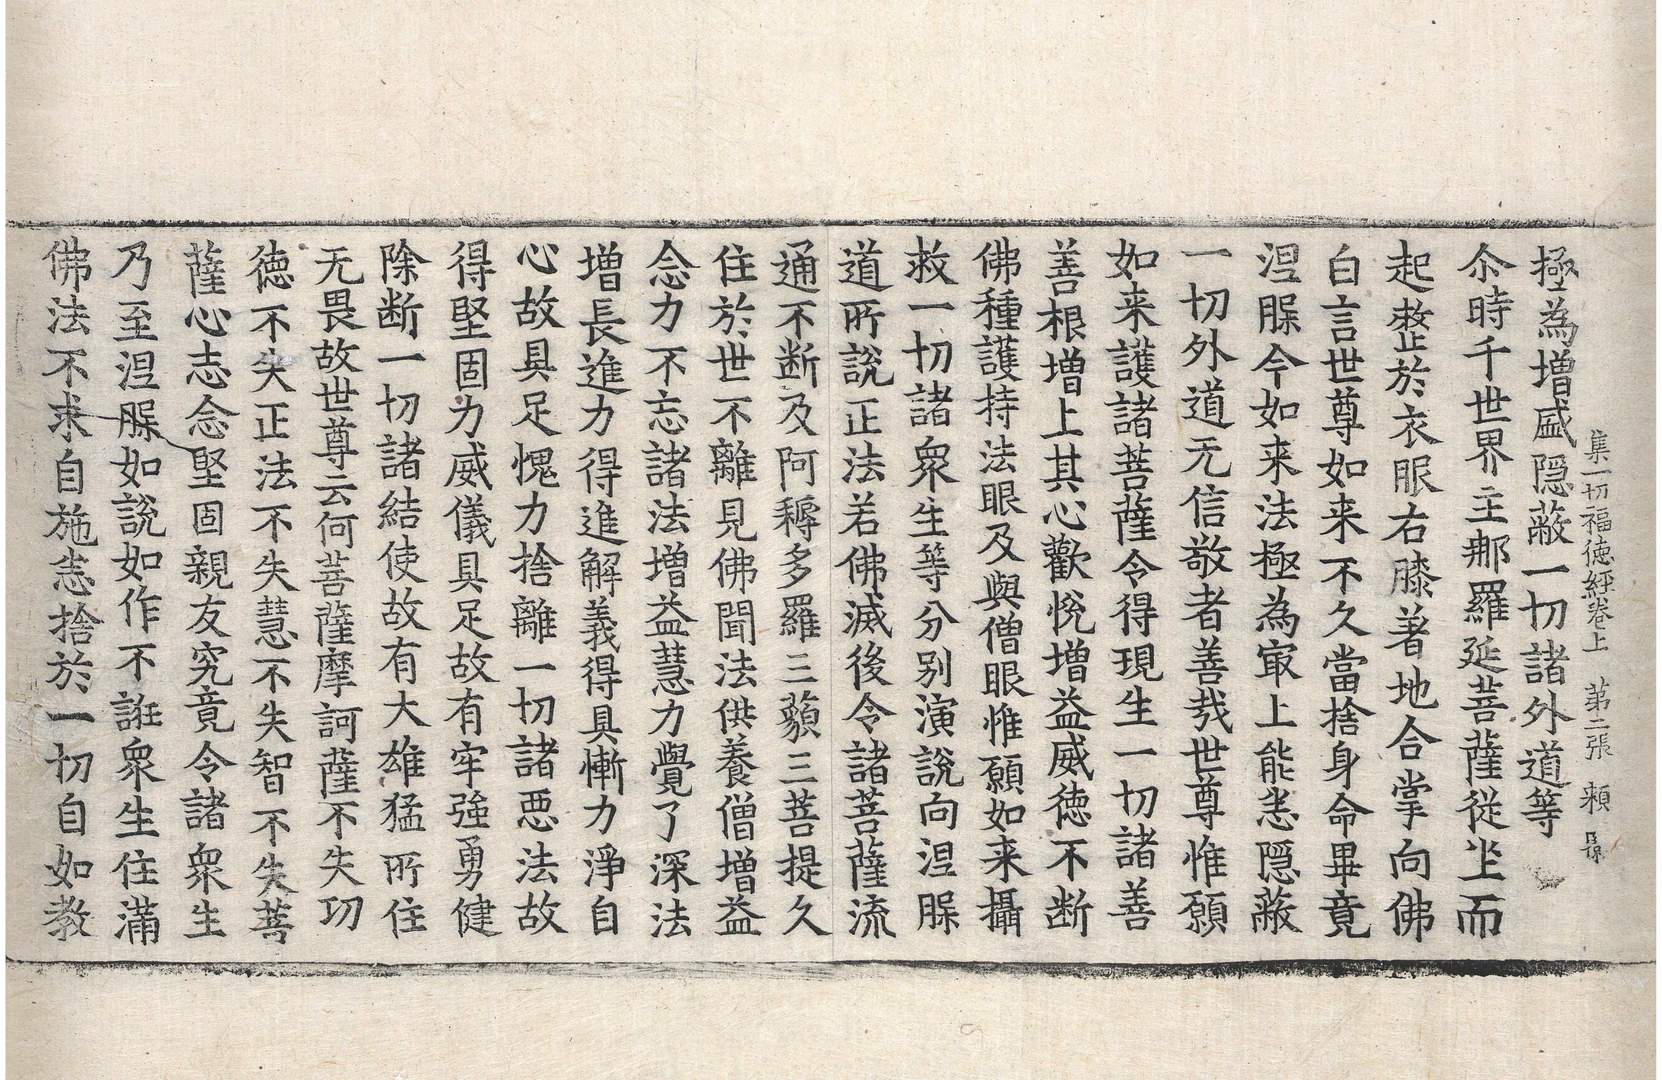 集一切福徳經卷上 第二張 賴
極為增盛隐蔽一切諸外道等
尒時千世界主那羅延菩薩從坐而
起整於衣服右膝著地合掌向佛
白言世尊如来不久當捨身命畢竟
涅槃今如来法極為㝡上能悉隱蔽
一切外道无信敬者善㢤世尊惟願
如来護諸菩薩令得現生一切諸善
善根增上其心歡悅增益威徳不断
佛種護持法眼及與僧眼惟願如来攝
救一切諸衆生等分别演說向涅槃
道所說正法若佛滅後令諸菩薩流
通不断及阿耨多羅三藐三菩提久
住於世不離見佛聞法供養僧增益
念力不忘諸法增益慧力覺了深法
增長進力得進解義得具慚力淨自
心故具足愧力捨離一切諸惡法故
得堅固力威儀具足故有牢強勇健
除断一切諸結使故有大雄猛所住
无畏故世尊云何菩薩摩訶薩不失功
徳不失正法不失慧不失智不失菩
薩心志念堅固親友究竟令諸衆生
乃至涅槃如說如作不誑衆生住滿
佛法不求自施悉捨於一切自如教